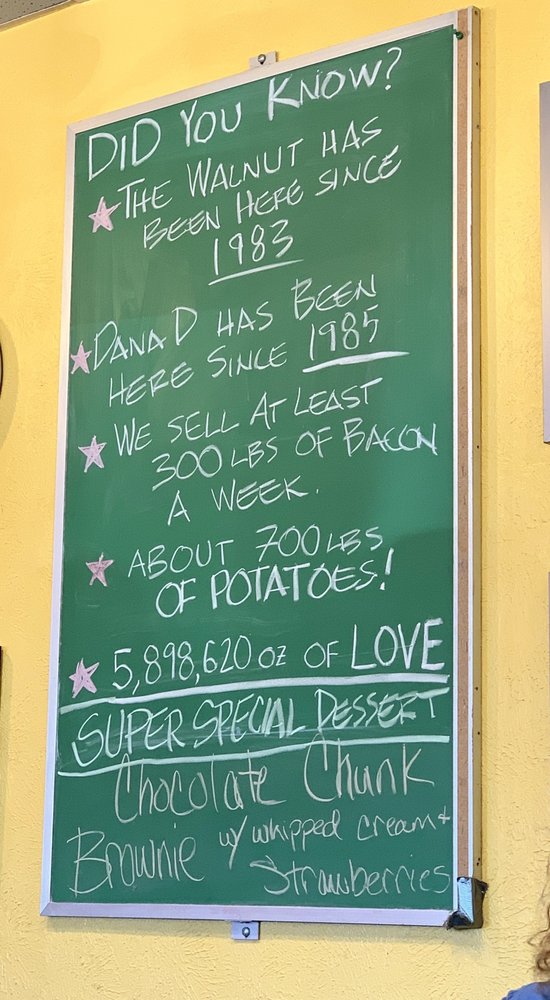 DID YOU KNOW?
THE WALNUT HAS
BEEN HERE SINCE
1983
DANA D HAS BEEN
HERE SINCE 1985
WE SELL AT LEAST
300 LBS OF BACON
A WEEK.
ABOUT 700 LBS
OF POTATOES!
5,898,620 OZ OF LOVE
SUPER SPECIAL DESSERT
Chocolate Chunk
Brownie w/ whipped cream +
Strawberries